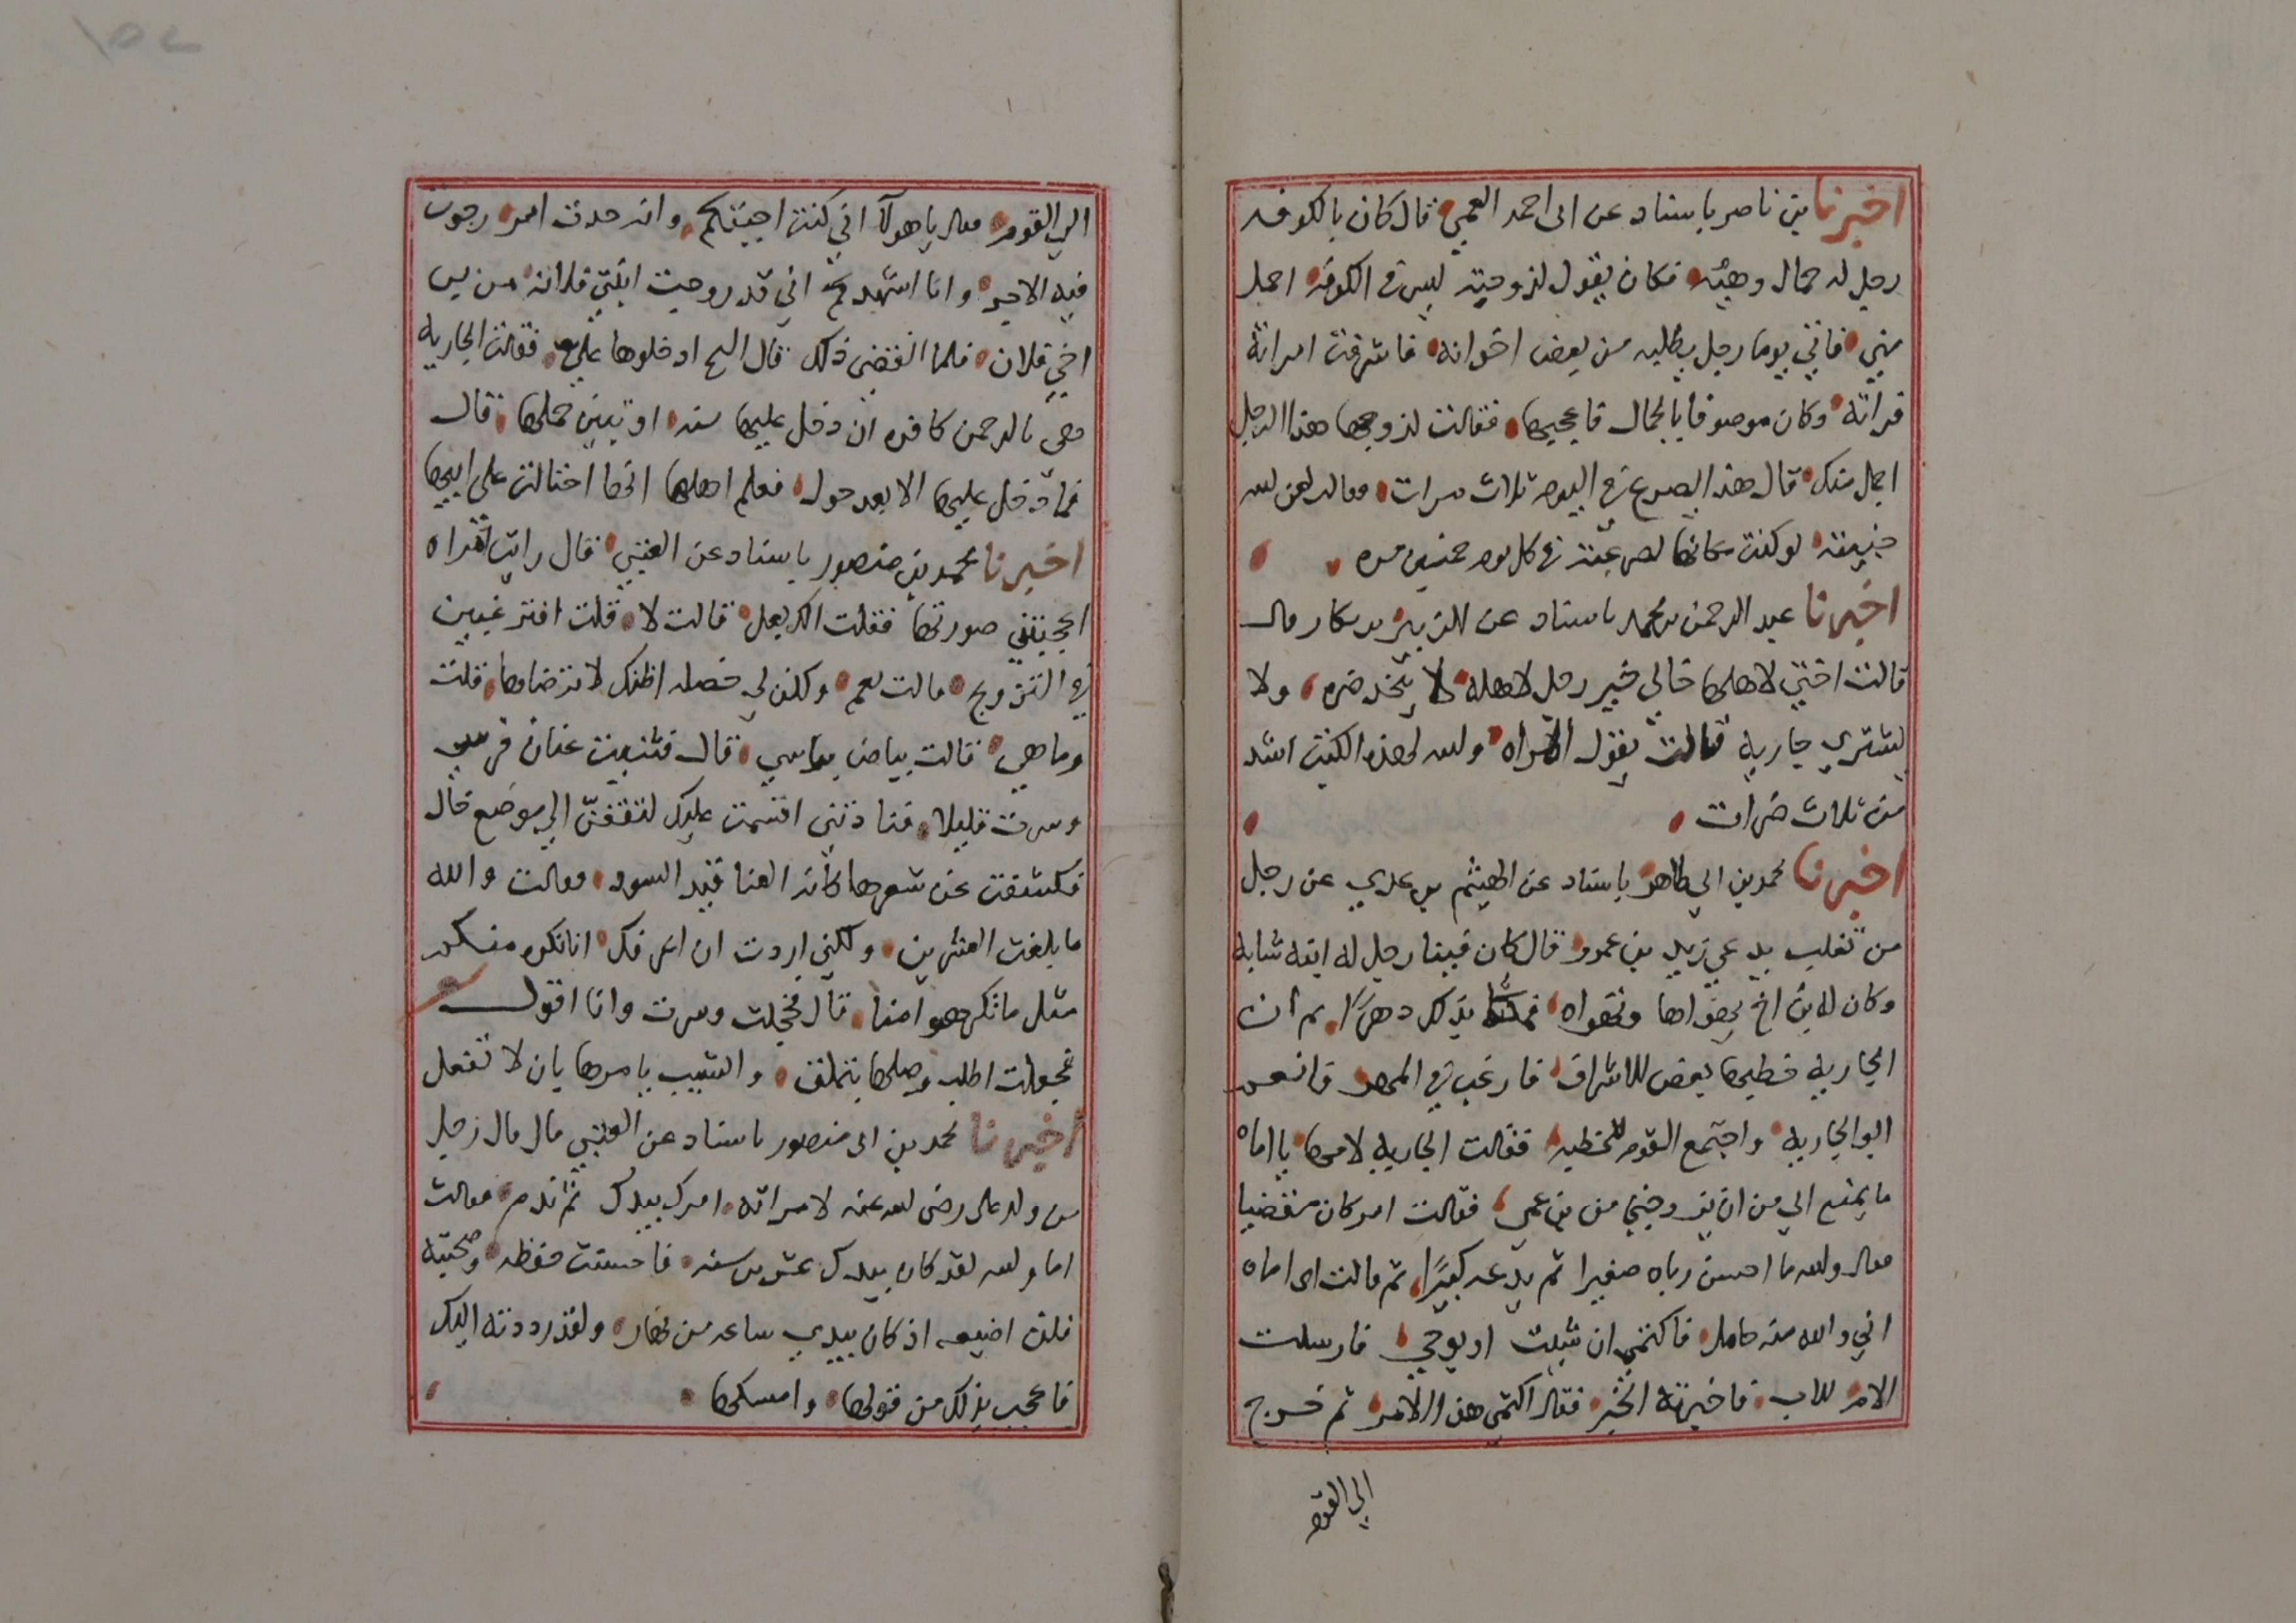 اخبرنا بن ناصر باسناد عن ابى احمد العمي قال كان بالكوفه
رجل له جمال وهيئه فكان يقول لزوجته ليس فى الكوفه اجمل
مني فاتي يوما رجل يطلبه من بعض اخوانه فاشرفت امراته
فراته وكان موصوفا بالجمال فاعجبها فقالت لزوجها هذا الرجل
اجمل منك قال هذا يصرع في اليوم ثلاث مرات فقالت لعن الله
لو كنت مكانها لصرعته في كل يوم خمسين مره
اخبرنا عبد الرحمن بن محمد باسناد عن الزبير بن بكار قال
قالت اختي لاهلها خالي خير رجل لاهله لا يتخذ ضره ولا
يشتري جاريه قالت تقول المراه والله لهذه الكتب اشد
من ثلاث ضرات
اخبرنا محمد بن ابي طاهر باسناد عن الهيثم بن عدي عن رجل
من تغلب يدعي يزيد بن عمرو قال كان فينا رجل له ابنه شابه
وكان له بن اخ يهواها وتهواه فمكثا بذلك دهرًا ثم ان
الجاريه خطبها بعض للاشراف فارغب في المهر فانعم
ابو الجاريه واجتمع القوم للخطبه فقالت الجاريه لامها يا اماه
ما يمنع ابي من ان يزوجني من بن عمي فقالت امر كان مقضيا
فقالت والله ما احسن رباه صغيرا ثم يدعه كبيرًا ثم قالت اى اماه
اني والله منه حامل فاكتمي ان شيت او بوحي فارسلت
الام للاب فاخبرته الخبر فقال اكتمي هذا الامر ثم خرج
الي القوم
الي القوم فقال يا هولآ اني كنت اجبتكم وانه حدث امر رجوت
فيه الاجر وانا اشهدكم اني قد زوجت ابنتي فلانه من بن
اخي فلان فلما انقضى ذلك قال الشيخ ادخلوها عليه فقالت الجاريه
هى بالرحمن كافره ان دخل عليها سنه او تبين حملها قال
فما دخل عليها الا بعد حول فعلم اهلها انها احتالت علي ابيها
اخبرنا محمد بن منصور باسناد عن العتبي قال رايت امراه
اعجبتني صورتها فقلت الك بعل قالت لا قلت افترغبين
في التزويج قالت نعم ولكن لي خصله اظنك لا ترضاها قلت
وما هي قالت بياض براسي قال فثنيت عنان فرسي
وسرت قليلا فنادتنى اقسمت عليك لتقفن الي موضع خال
فكشفت عن شعرها كانه العناقيد السود فقالت والله
ما بلغت العشرين ولكني اردت ان اعرفك انا نكره منك
مثل ما تكرهوا منا قال فخجلت وسرت وانا اقول
فجعلت اطلب وصلها بتملق والشيب يامرها بان لا تفعل
اخبرنا محمد بن ابى منصور باسناد عن العتبي قال قال رجل
من ولد على رضى الله عنه لامراته امرك بيدك ثم ندم فقالت
اما والله لقد كان بيدك عشرين سنه فاحسنت حفظه وصحبته
فلن اضيعه اذ كان بيدي ساعه من نهار ولقد رددته اليك
فاعجب بذلك من قولها وامسكها